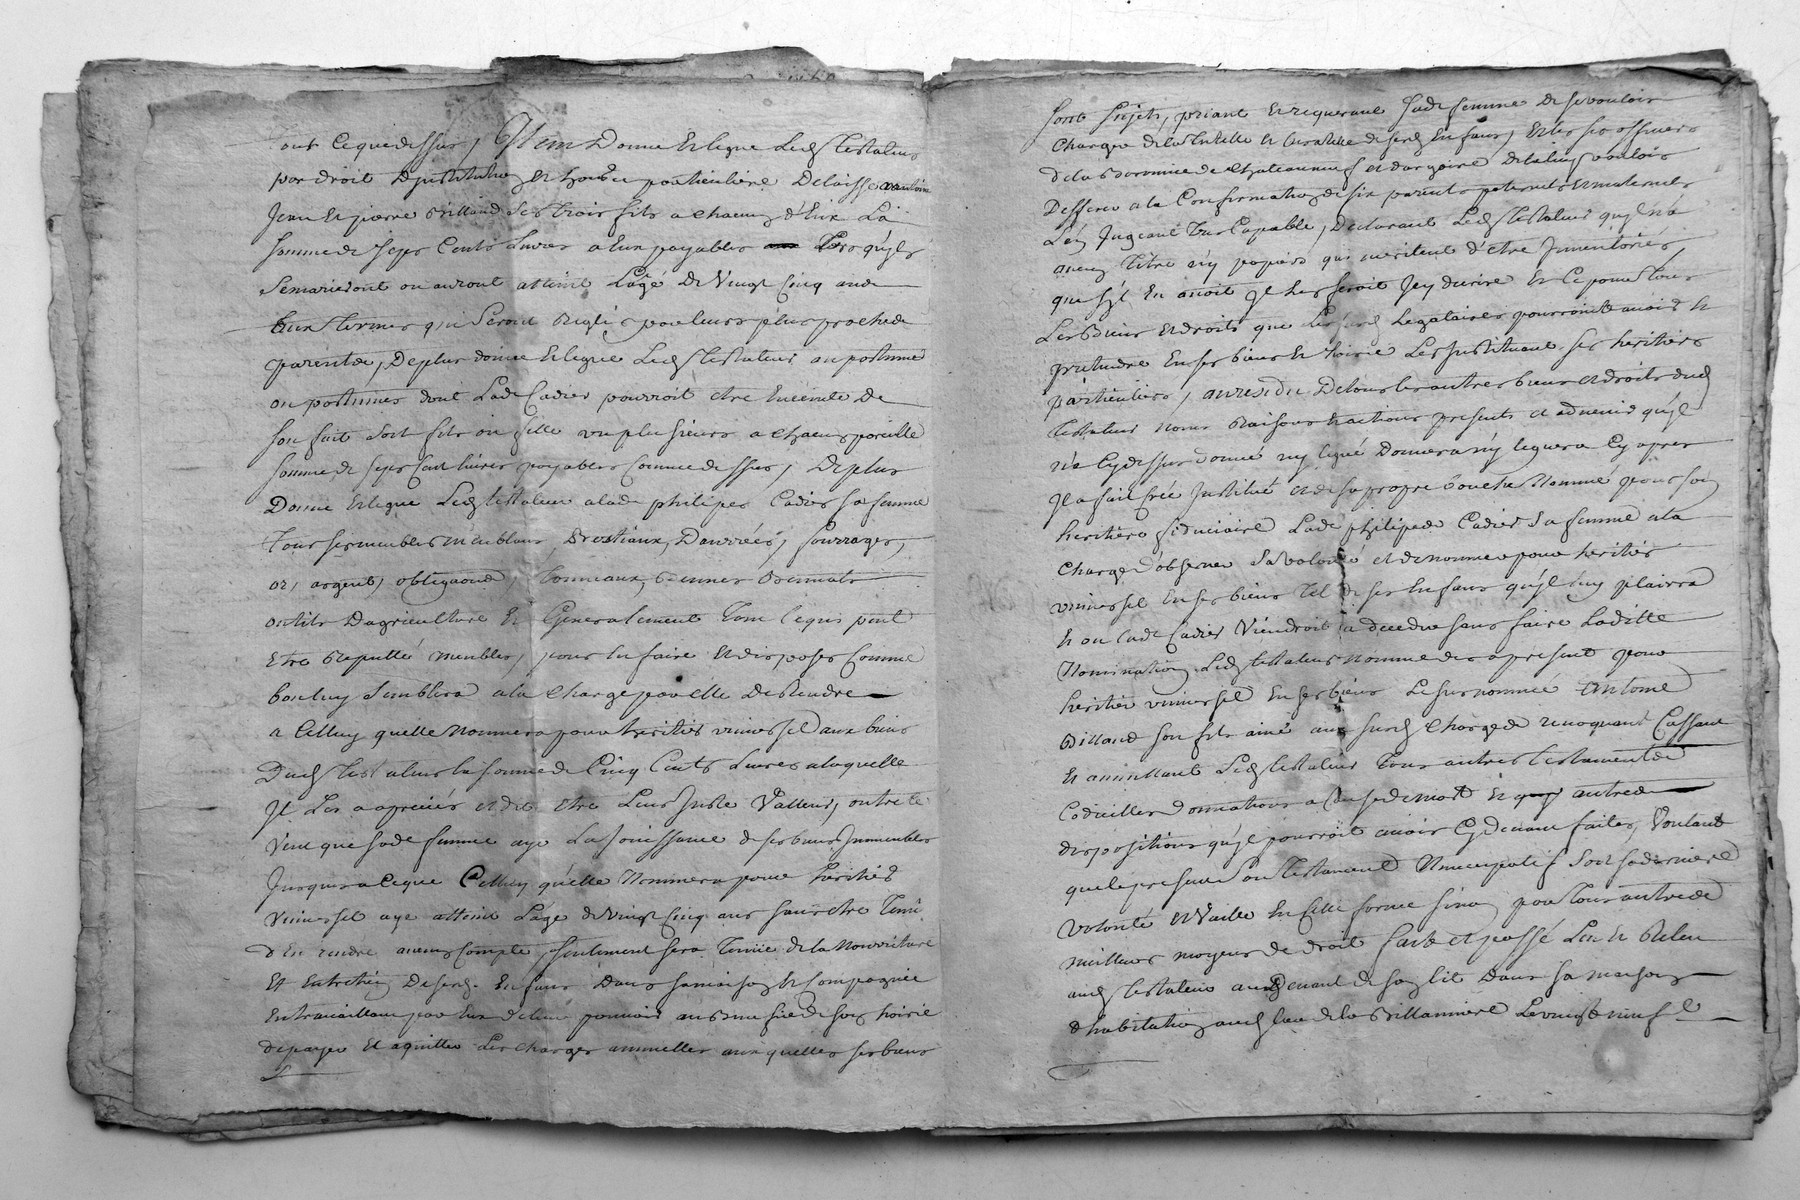 tout ce que dessus, Item Donne et legue Led. testateur
par droit D'institution et hoirie particulière Delaisse a antoine
Jean et pierre Billaud ses trois fils a chacun d'Eux La
somme de sept Cents Livres a Eux payables Lors qu'ils
Semarieront ou auront atteint L'agé De Vingt Cinq ans
Eux termes qui Seront Reglés par leurs plus proches
parents, De plus donne et legue Led. testateur au postume
ou postumes dont Lad. Cadier pourroit etre Enceinte De
son fait soit fils ou fille un plusieurs a chacun pareille
somme de sept Cent livres payables Comme dessus, De plus
Donne et legue Led. testateur alad. philipes Cadier sa femme
tous ses meubles meublans, Bestiaux, Danrées, fourrages,
or, argent, obligations, tonneaux,
outils Dagriculture Et Generalement tout ce qui peut
Etre Reputté meubles, pour En faire et disposer Comme
bon luy Semblera a la charge par elle De Rendre
a Celluy quelle Nommera pour heritier universel aux biens
Dud. testateur la somme de Cinq Cents Livres a laquelle
Il Les a apreciés et dit etre Leur Juste Valleur, outre ce
Veut que sad. femme aye La Jouissance de ses biens Immeubles
Jusqu'a ce que Celluy qu'elle Nommera pour heritier
universel aye atteint L'age de Vingt Cinq ans sans etre Tenüe
d'En rendre aucun Compte, seulement sera Tenüe de la Nourriture
Et Entretien De ses d. Enfans Dans sa maison Et Compagnie
En travaillant par Eux de leur pouvoir au Benefice de son hoirie
de payer Et aquitter Les charges annuelles auxquelles ses biens
sont Sujets, priant et requerant sad. femme De se vouloir
Charger de la tutelle et Curatelle de ses d. Enfans, Et les srs officiers
De la Baronnie de Chateauneuf et dargoire De la luy vouloir
Defferer a la Confirmation de six parents paternels et maternels
L'en Jugeant Tres Capable, Declarant Led. testateur qu'il n'a
aucun titre ny papiers qui meritent d'être Inventoriés,
que s'il En avoit Il Les feroit Icy d'ecrire Et Ce pour tous
Les Biens et droits que Les sus d. Legataires pourroint avoir et
pretendre En ses biens et hoirie Les Instituant ses heritiers
particuliers, au residu De tous les autres biens et droits dud.
testateur Noms Raisons et actions presents et advenir qu'il
n'a Cy dessus donné ny legué Donnera ny leguera Cy apres
Il a fait Créé Institué et de sa propre bouche Nommé pour son
heritiere fiduciaire Lad. philipes Cadier Sa femme a la
charge d'observer Sa volonté et de nommer pour heritier
universel En ses biens Tel de ses Enfans qu'il luy plairra
Et ou Lad. Cadier Viendroit a deceder sans faire Laditte
Nomination Led. testateur Nomme des a present pour
heritier universel En ses biens Le surnommé Antoine
Billaud son fils ainé aux sus d. Charges revoquant Cassant
Et annullant Led. testateur Tous autres testaments
Codicilles Donnations a Cause de mort et autres
dispositions qu'il pourroit avoir Cy devant faites, Voulant
que le present son testament Nuncupatif Soit sa derniere
volonté et Vaille En Cette forme sinon par tous autres
meilleurs moyens de droit fait et passé Leu et Releu
aud. testateur au Devant de son lit Dans sa maison
d'habitation aud. lieu de la Billanniere Le vingt neuf